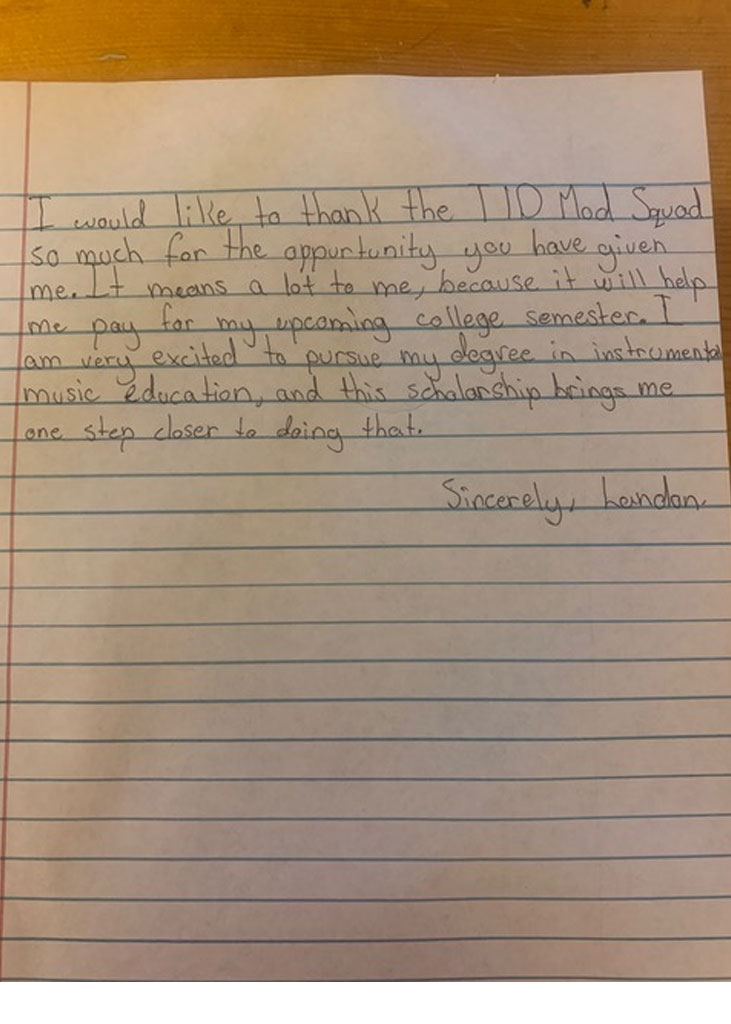 I would like to thank the T1D Mod Squad
so much for the oppurtunity you have given
me. It means a lot to me, because it will help
me pay for my upcoming college semester. I
am very excited to pursue my degree in instrumental
music education, and this scholarship brings me
one step closer to doing that.
Sincerely, Landon